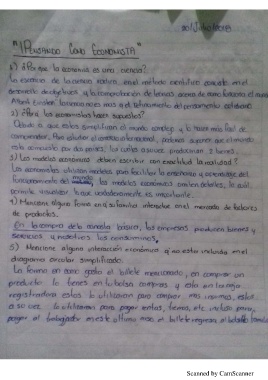 "¡PENSANDO COMO ECONOMISTA"
1) ¿Por que la economía es una ciencia?
La esencia de la ciencia radica en el método científico consiste en el
desarrollo de objetivos y la comprobación de teorías acerca de como funciona el mundo
del pensamiento cotidiano
2) ¿Para los economistas hacer supuestos?
Debido a que estos simplifican el mundo complejo y lo hacen más fácil de
comprender. Para estudiar el comercio internacional, podemos suponer que el mundo
está compuesto por dos países, los cuales a su vez producen 2 bienes.
3) Los modelos económicos deben describir con exactitud la realidad?
Los economistas utilizan modelos para facilitar la enseñanza y aprendizaje del
funcionamiento del mundo, los modelos económicos omiten detalles, lo cual
permite visualizar lo que verdaderamente es importante.
4) Mencione alguna forma en q' su familia interactúa en el mercado de factores
de productos.
En la compra de la canasta básica, las empresas producen bienes y
servicios y nosotros los consumimos.
5) Mencione alguna interacción económica q' no esta incluida en el
diagrama circular simplificado.
La forma en como gasto el billete mencionado, en comprar un
producto lo tienes en tu bolsa compras y esta en la caja
registradora estos le utilizaran para comprar mas insumos, estos
a su vez lo utilizaran para pagar rentas, tierra, etc. incluso para
pagar al trabajador
Scanned by CamScanner